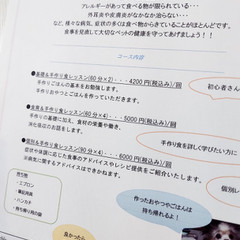 アレルギーがあって食べる物が限られている・・・
外耳炎や皮膚炎がなかなか治らない・・・
など、様々な病気、症状の多くは食べ物からきていることがほとんどです。
食事を見直して大切なペットの健康を守ってあげましょう！！
コース内容
●基礎&手作り食レッスン(60分×2)・・・4200円(税込み)/回
手作りごはんの基本をお勉強します。
手作りおやつとごはんを作っていただきます。
初心者さん
●食育&手作り食レッスン(60分×4)・・・5000円(税込み)/回
手作りの基礎に加え、食材の栄養や働き、
消化吸収のお話をします。
手作り食を詳しく学びたい方に
●個別&手作り食レッスン(60分×4)・・・6000円(税込み)/回
症状や体調に応じた食事のアドバイスやレシピ提供をご紹介いたします。
※病気に関するアドバイスはできかねます。
個別レ
持ち物
・エプロン
・筆記用具
・ハンカチ
・持ち帰り用の袋
作ったおやつやごはんは
持ち帰れるよ！
良かったら